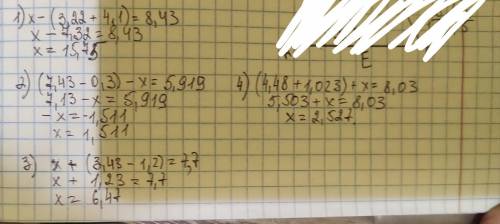 1) x - (3,22 + 4,1) = 8,43
x - 7,32 = 8,43
x = 15,75
2) (7,43 - 0,3) - x = 5,919
7,13 - x = 5,919
-x = -1,511
x = 1,511
3) x + (3,43 - 1,2) = 7,7
x + 1,23 = 7,7
x = 6,47
4) (4,48 + 1,023) + x = 8,03
5,503 + x = 8,03
x = 2,527
E